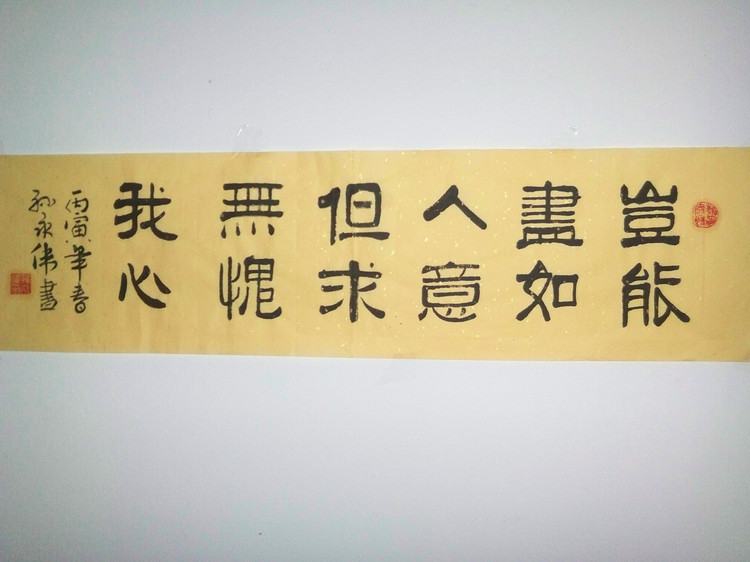 豈能
盡如
人意
但求
無愧
我心
丙寅年春
孙永伟書